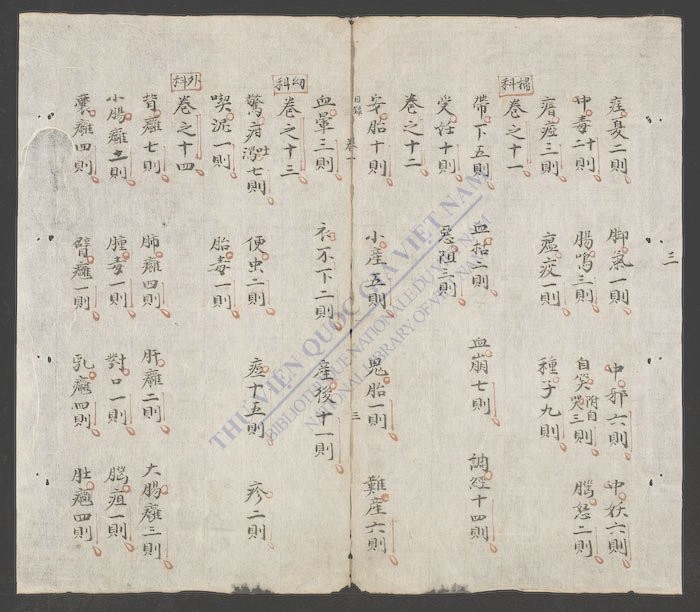 三
痓憂二則 脚氣一則 中邪六則 中妖六則
中毒二十則 腸鳴三則 自笑附自哭三則 腦怒二則
瘖瘂三則 瘟疫一則 種子九則
婦科
卷之十一
帶下五則 血枯二則 血崩七則 調經十四則
受妊十則 惡阻三則
卷之十二
安胎十則 小産五則 鬼胎一則 難産六則
目錄 卷一 三
血暈三則 衣不下二則 産後十一則
幼科
卷之十三
驚疳吐瀉七則 便虫二則 痘十五則 疹二則
喫泥一則 胎毒一則
外科
卷之十四
背癰七則 肺癰四則 肝癰二則 大腸癰三則
小腸癰三則 腫毒一則 對口一則 腦疽一則
囊癰四則 臂癰一則 乳癰四則 肚癰四則
THƯ VIỆN QUỐC GIA VIỆT NAM
BIBLIOTHEQUE NATIONALE DU VIETNAM
NATIONAL LIBRARY OF VIETNAM